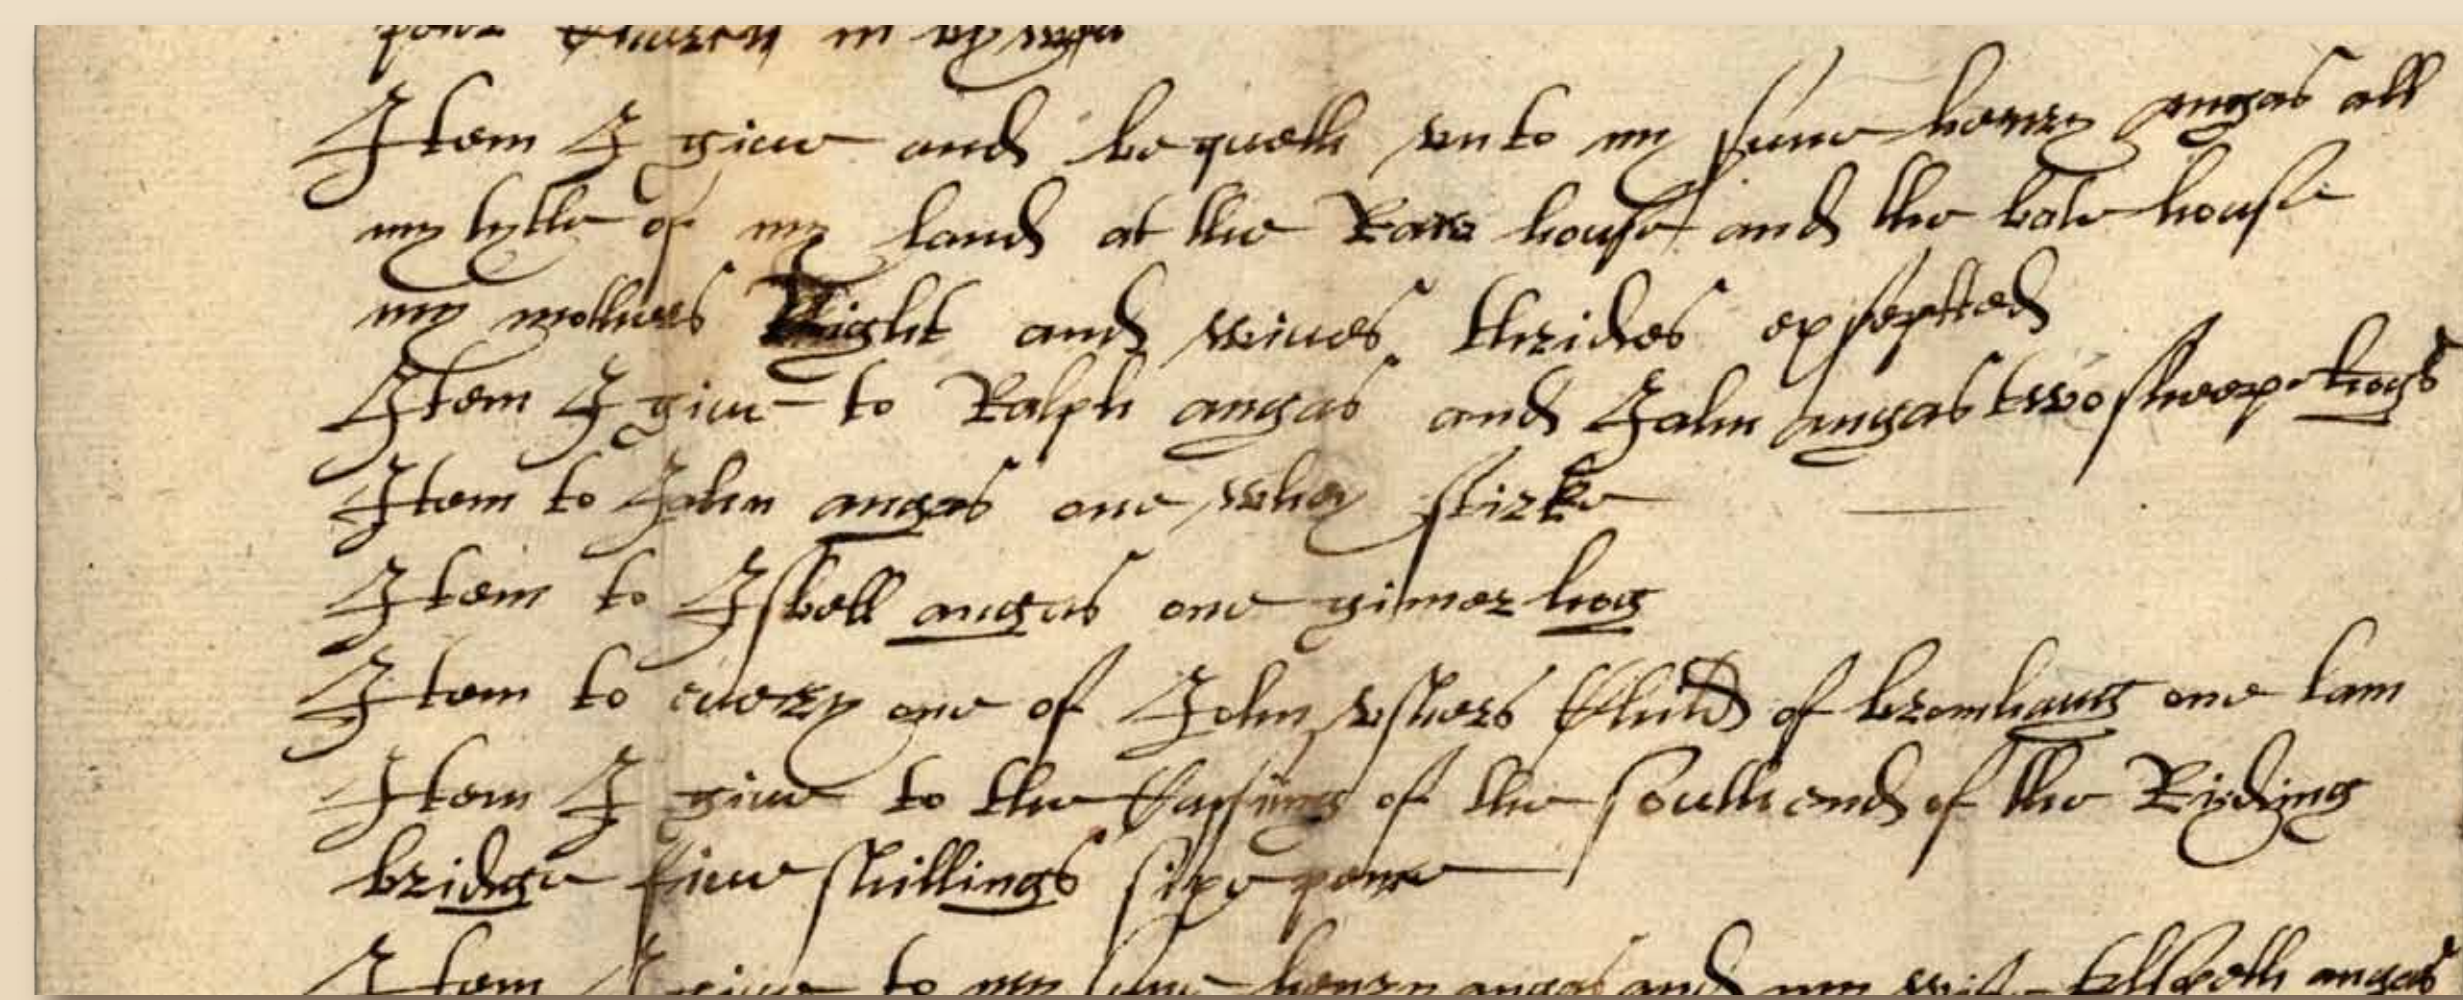 Item I giue and bequeth vnto my sune henry angas all
my tytle of my land at the Raw house and the bate house
my mothers Right and wiues thrides exsepted
Item I giue to Ralph angas and John angas two sheepe hogs
Item to John angas one whey stirke
Item to Isbell angus one gimer hog
Item to euery one of John vshers Child of bromhaug one lam
Item I giue to the Cassing of the south end of the Riding
bridge fiue shillings sixe pence
Item I giue to my sune henry angas and my wife angas